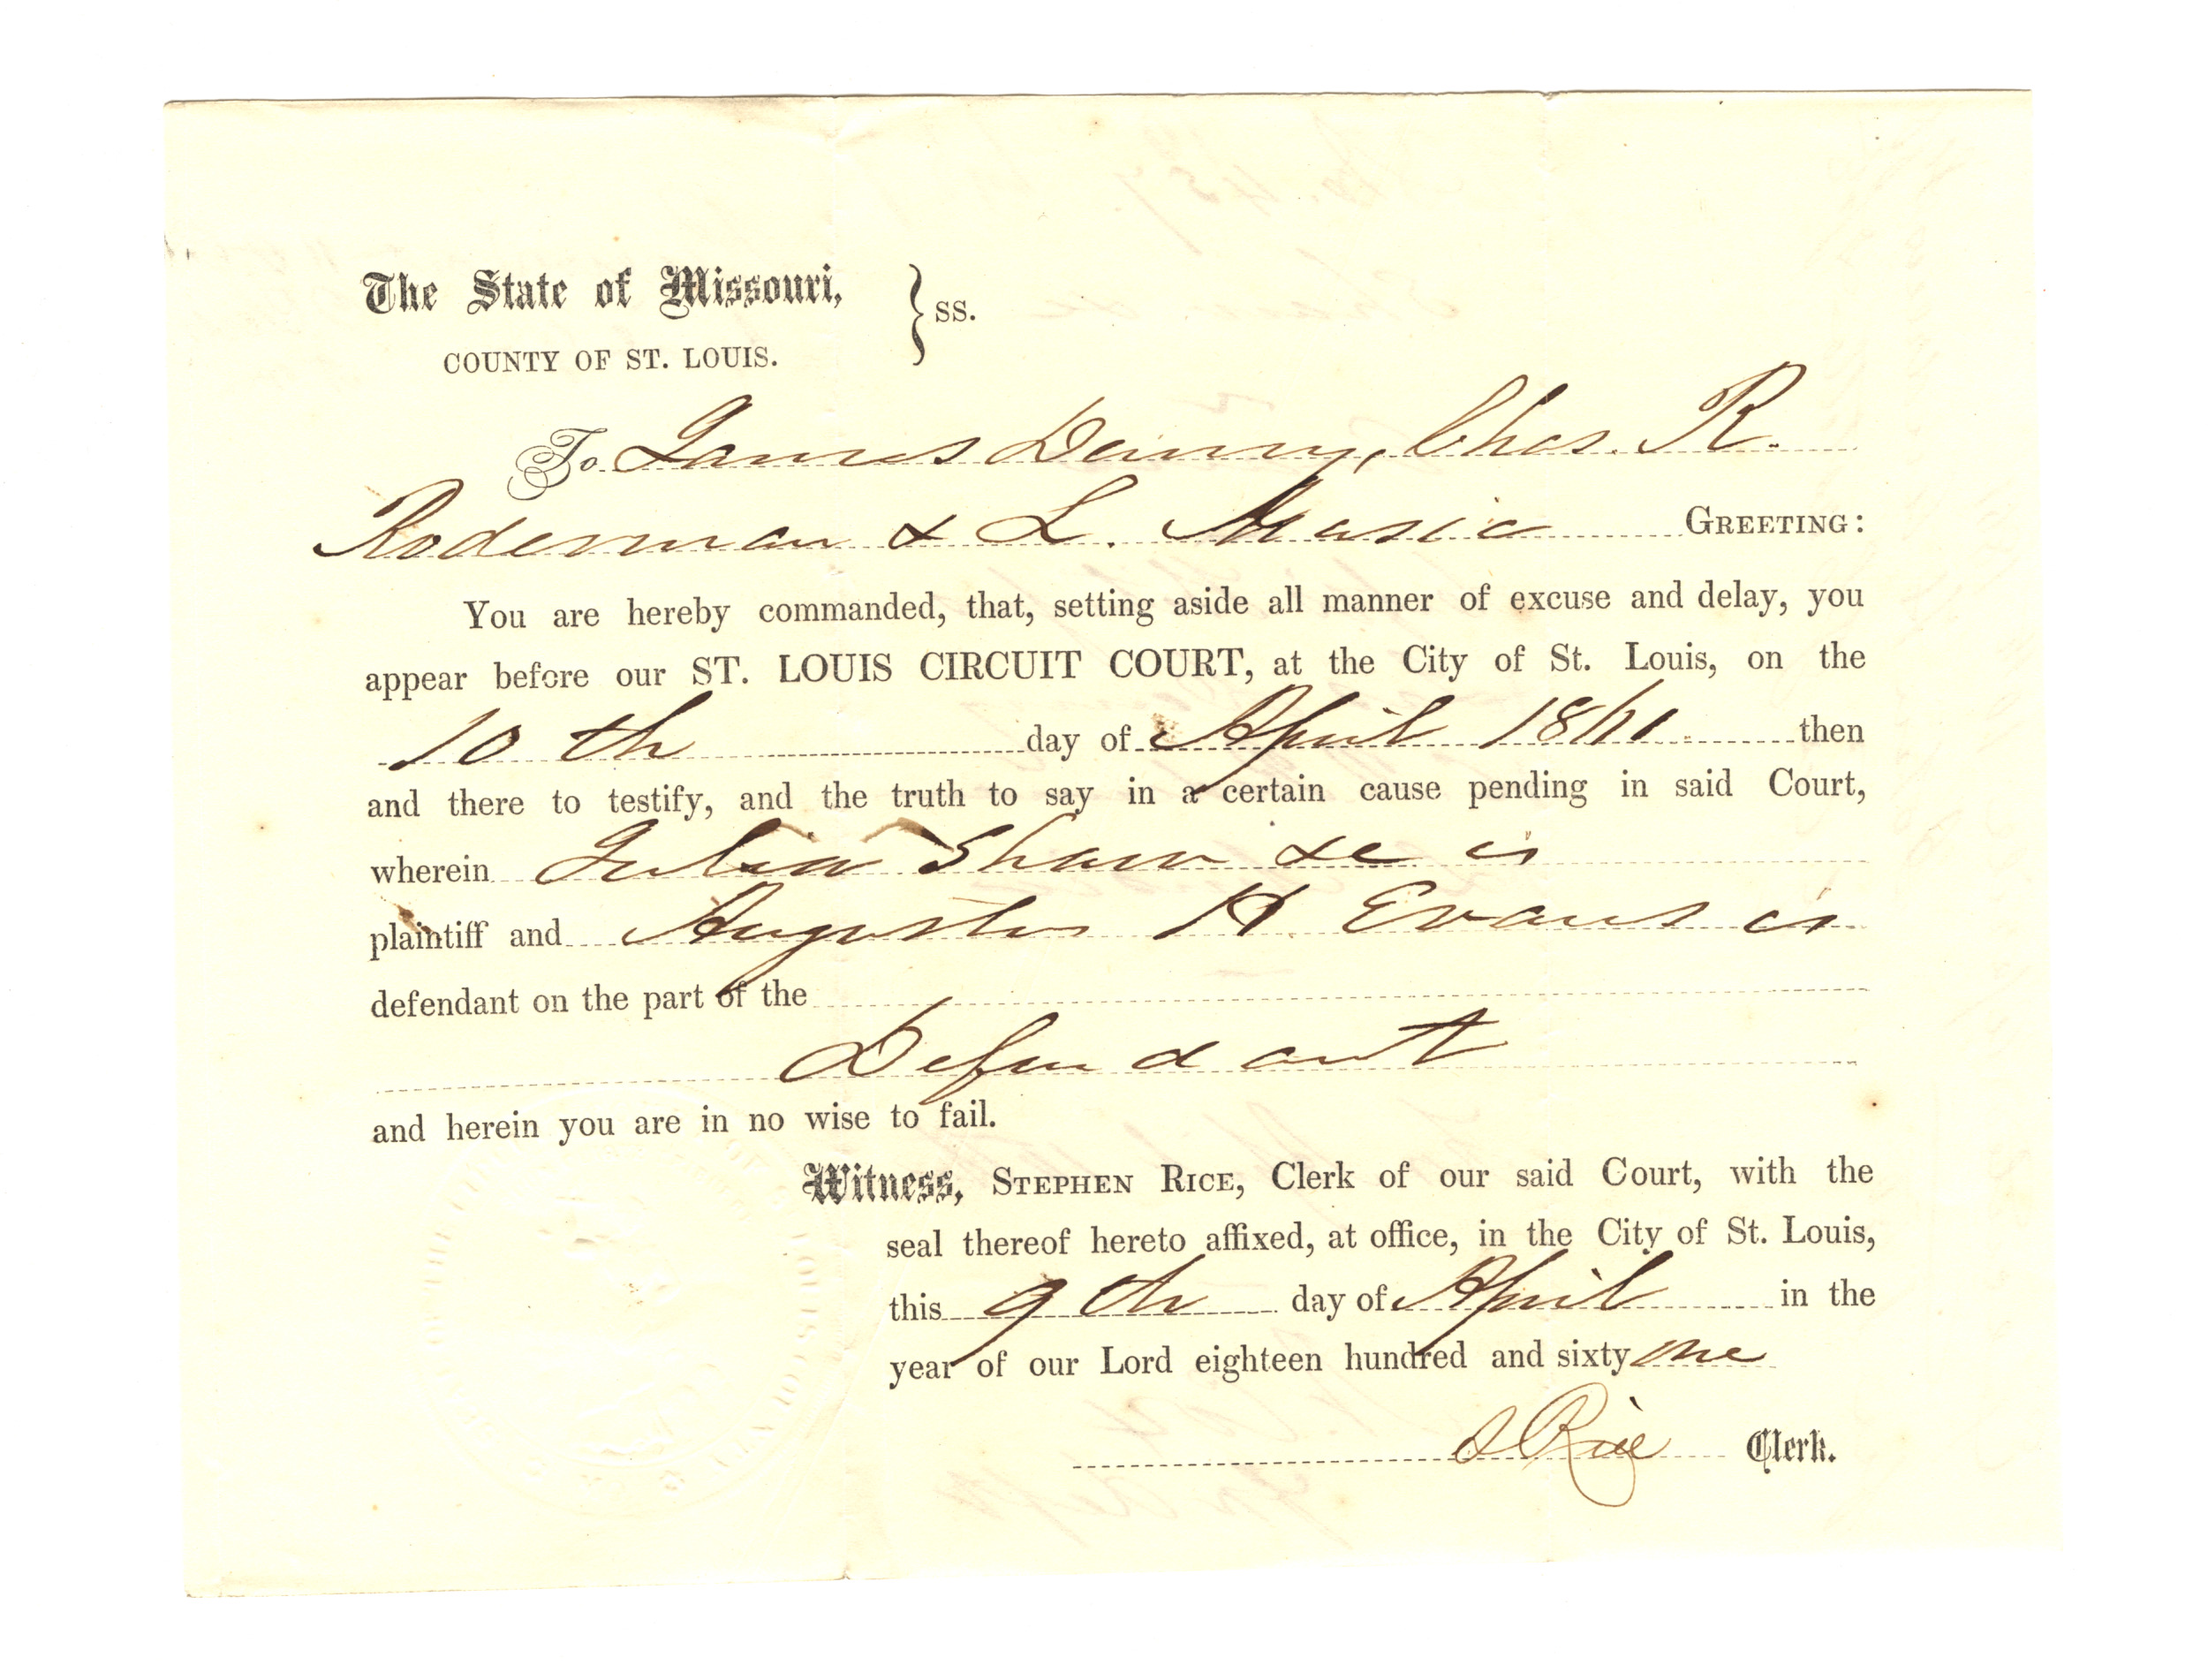 The State of Missouri,
COUNTY OF ST. LOUIS. } SS.
To James Denny, Chas. R.
Roderman & L. Musia GREETING:
You are hereby commanded, that, setting aside all manner of excuse and delay, you
appear before our ST. LOUIS CIRCUIT COURT, at the City of St. Louis, on the
10th day of April 1861. then
and there to testify, and the truth to say in a certain cause pending in said Court,
wherein Julia Shaw &c is
plaintiff and Augustus H. Evans is
defendant on the part of the
Defendant
and herein you are in no wise to fail.
Witness, STEPHEN RICE, Clerk of our said Court, with the
seal thereof hereto affixed, at office, in the City of St. Louis,
this 9th day of April in the
year of our Lord eighteen hundred and sixty one
S Rice Clerk.